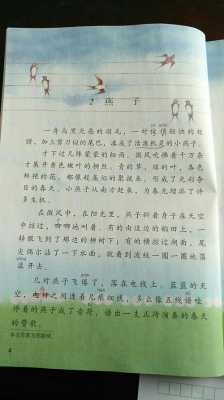 2 燕 子
一身乌黑光亮的羽毛，一对俊俏轻快的翅
膀，加上剪刀似的尾巴，凑成了活泼机灵的小燕子。
才下过几阵蒙蒙的细雨。微风吹拂着千万条
才展开带黄色的嫩叶的柳丝。青的草，绿的叶，各色
鲜艳的花，都像赶集似的聚拢来，形成了
的春天。小燕子从南方赶来，为春光增添了许
多生机。
在微风中，在阳光里，燕子斜着身子在天空
中掠过，唧唧地叫着，有的由这边的稻田上，一
转眼飞到了那边的柳树下；有的横掠过湖面，尾
尖偶尔沾了一下水面，就看到波纹一圈一圈地荡
漾开去。
几对燕子飞倦了，落在电线上。蓝蓝的天
空，电杆之间连着几痕细线，多么像五线谱哇。
停着的燕子成了音符，谱出一支正待演奏的春天
的赞歌。
4